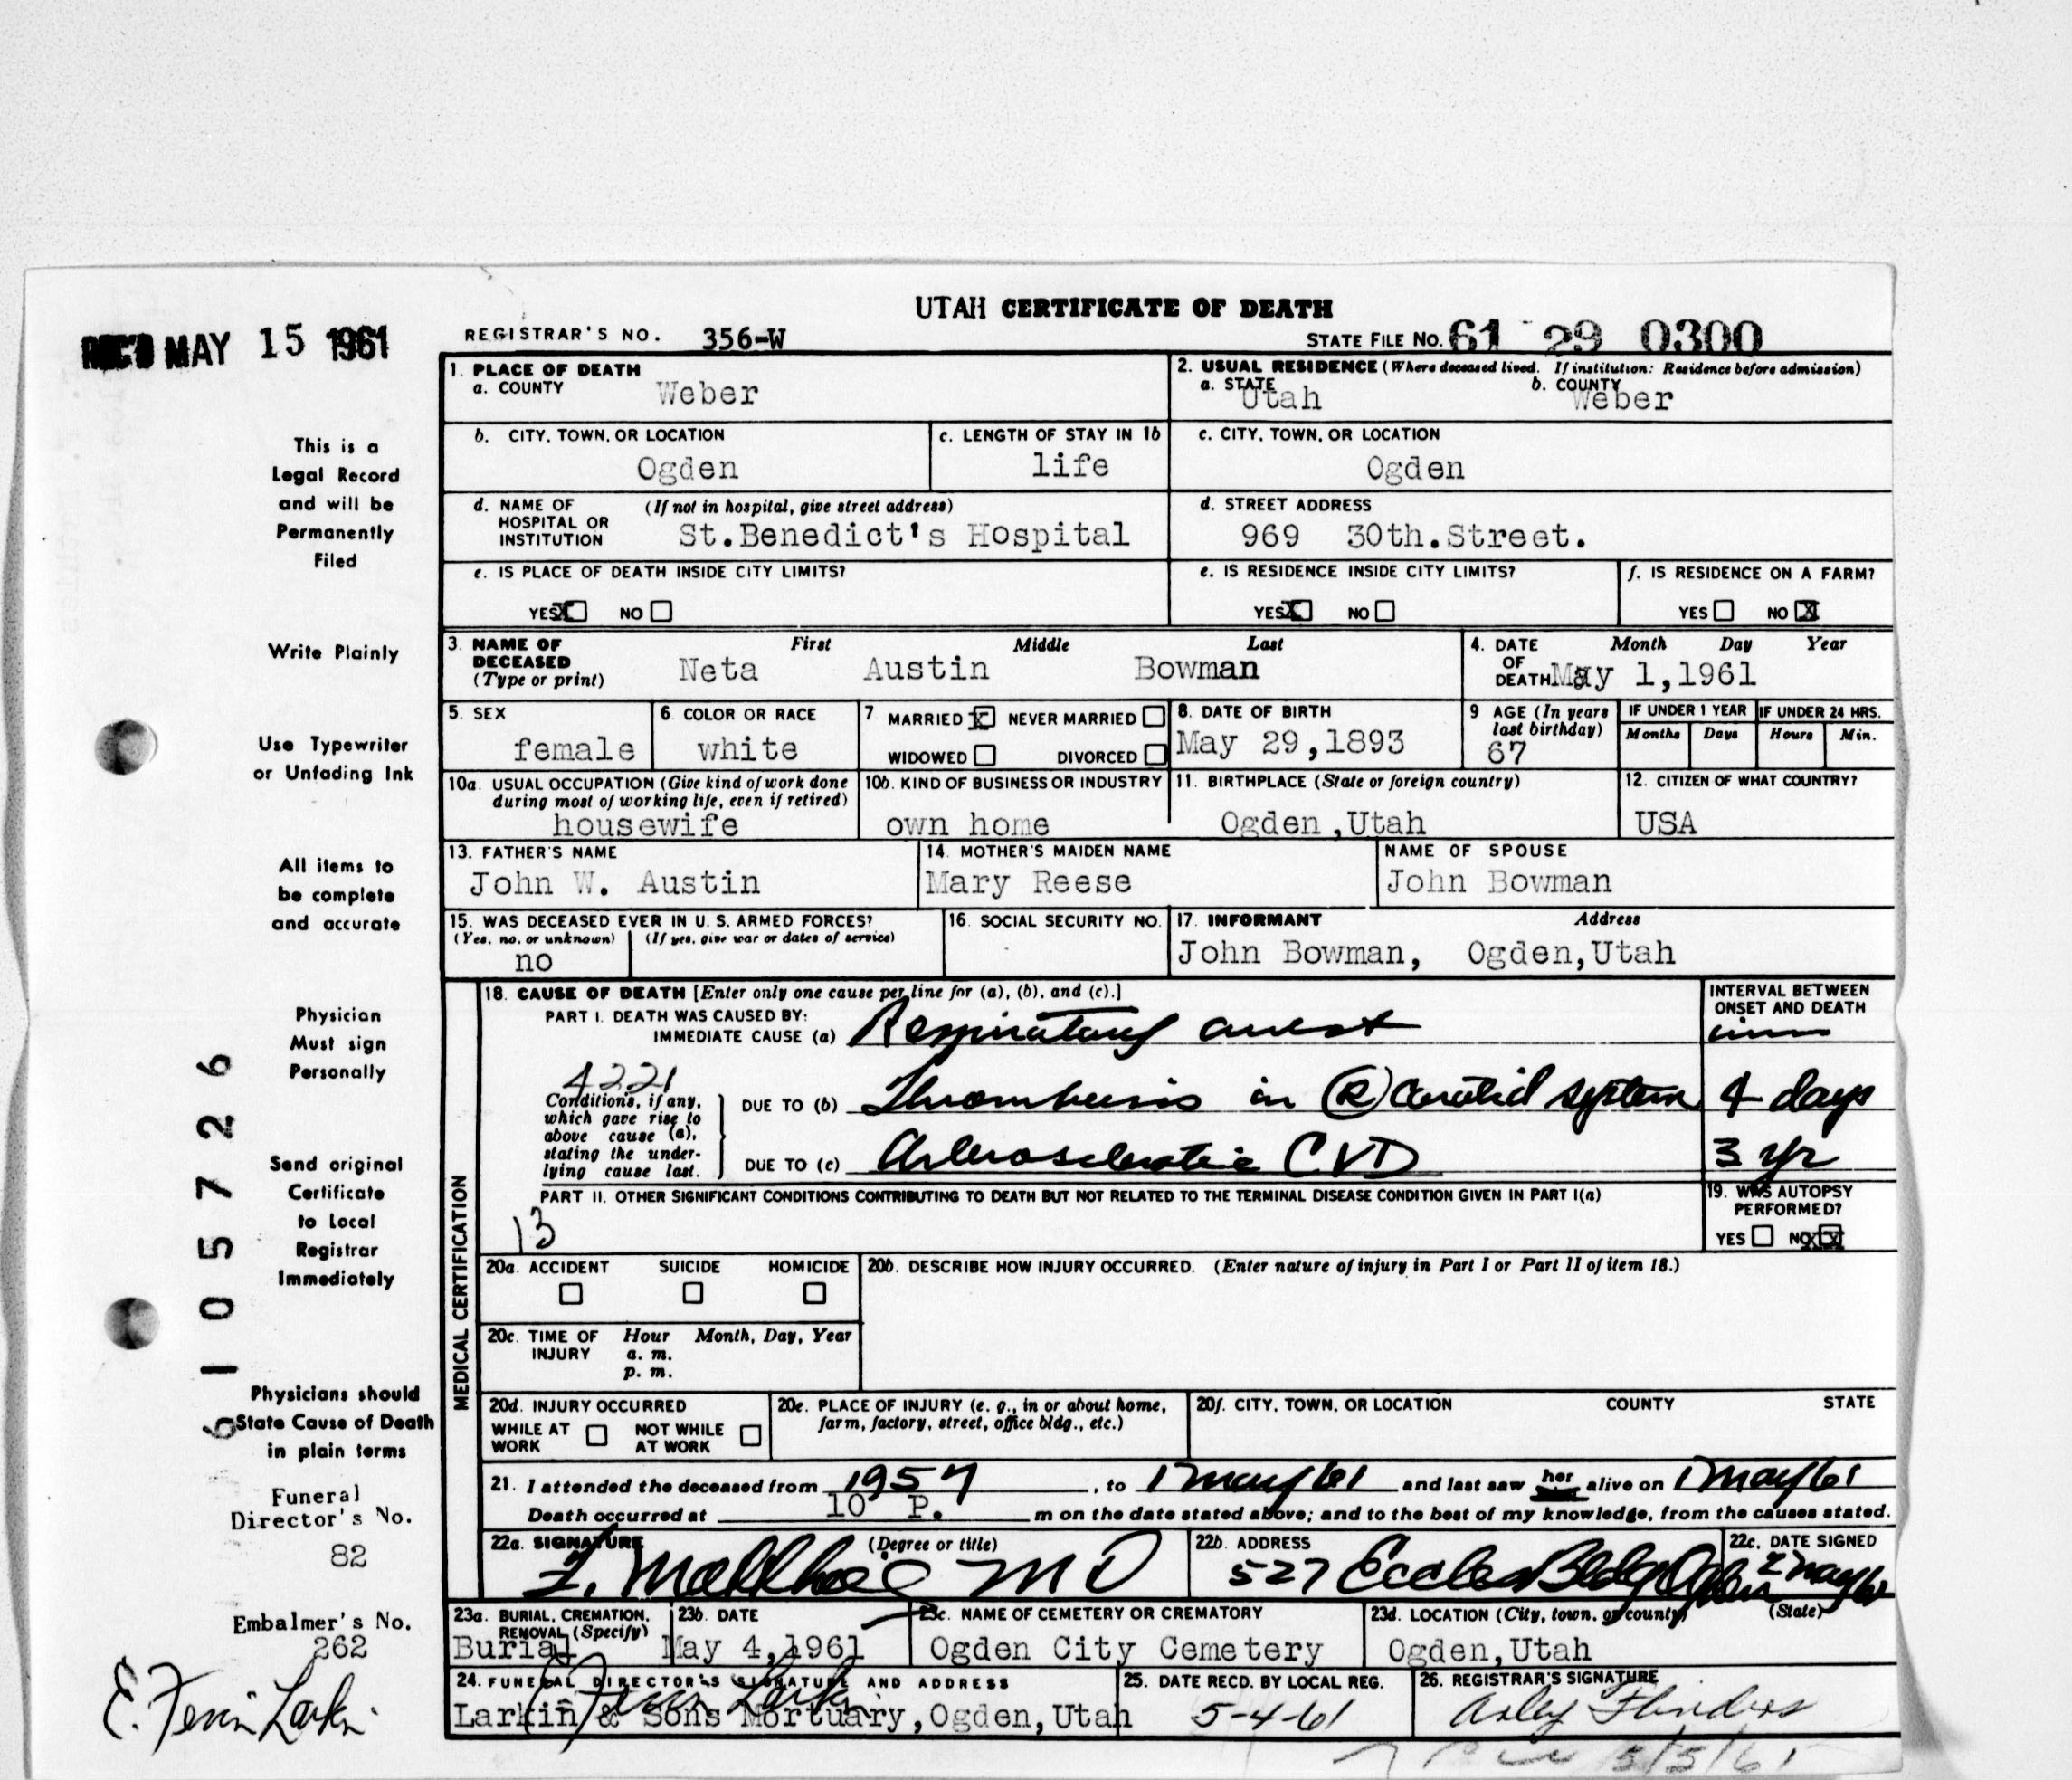 UTAH CERTIFICATE OF DEATH
REC'D MAY 15 1961
REGISTRAR'S NO. 356-W
STATE FILE NO. 61 29 0300
1. PLACE OF DEATH
a. COUNTY Weber
2. USUAL RESIDENCE (Where deceased lived. If institution: Residence before admission)
a. STATE Utah b. COUNTY Weber
b. CITY, TOWN, OR LOCATION Ogden
c. LENGTH OF STAY IN 1b life
c. CITY, TOWN, OR LOCATION Ogden
d. NAME OF HOSPITAL OR INSTITUTION (If not in hospital, give street address)
St.Benedict's Hospital
d. STREET ADDRESS
969 30th.Street.
e. IS PLACE OF DEATH INSIDE CITY LIMITS?
YES X NO
e. IS RESIDENCE INSIDE CITY LIMITS?
YES X NO
f. IS RESIDENCE ON A FARM?
YES NO X
3. NAME OF DECEASED (Type or print)
First Middle Last
Neta Austin Bowman
4. DATE OF DEATH Month Day Year
May 1,1961
5. SEX female
6. COLOR OR RACE white
7 MARRIED X NEVER MARRIED
WIDOWED DIVORCED
8. DATE OF BIRTH
May 29,1893
9 AGE (In years last birthday)
67
IF UNDER 1 YEAR IF UNDER 24 HRS.
Months Days Hours Min.
10a. USUAL OCCUPATION (Give kind of work done during most of working life, even if retired)
housewife
10b. KIND OF BUSINESS OR INDUSTRY
own home
11. BIRTHPLACE (State or foreign country)
Ogden,Utah
12. CITIZEN OF WHAT COUNTRY?
USA
13. FATHER'S NAME
John W. Austin
14. MOTHER'S MAIDEN NAME
Mary Reese
NAME OF SPOUSE
John Bowman
15. WAS DECEASED EVER IN U. S. ARMED FORCES?
(Yes, no, or unknown) (If yes, give war or dates of service)
no
16. SOCIAL SECURITY NO.
17. INFORMANT Address
John Bowman, Ogden,Utah
MEDICAL CERTIFICATION
18. CAUSE OF DEATH [Enter only one cause per line for (a), (b), and (c).]
INTERVAL BETWEEN ONSET AND DEATH
PART I. DEATH WAS CAUSED BY:
IMMEDIATE CAUSE (a) Respiratory arrest
4221
Conditions, if any, which gave rise to above cause (a), stating the underlying cause last.
DUE TO (b) Thrombosis in (R) Carotid system 4 days
DUE TO (c) Arteriosclerotic CVD 3 yr
PART II. OTHER SIGNIFICANT CONDITIONS CONTRIBUTING TO DEATH BUT NOT RELATED TO THE TERMINAL DISEASE CONDITION GIVEN IN PART I(a)
13
19. WAS AUTOPSY PERFORMED?
YES NO X
20a. ACCIDENT SUICIDE HOMICIDE
20b. DESCRIBE HOW INJURY OCCURRED. (Enter nature of injury in Part I or Part II of item 18.)
20c. TIME OF INJURY Hour Month, Day, Year
a. m.
p. m.
20d. INJURY OCCURRED
WHILE AT WORK NOT WHILE AT WORK
20e. PLACE OF INJURY (e. g., in or about home, farm, factory, street, office bldg., etc.)
20f. CITY, TOWN, OR LOCATION COUNTY STATE
21. I attended the deceased from 1957, to 1 May 61 and last saw her alive on 1 May 61
Death occurred at 10 P. m on the date stated above; and to the best of my knowledge, from the causes stated.
22a. SIGNATURE (Degree or title)
MD
22b. ADDRESS
527 Eccles Bldg Ogden
22c. DATE SIGNED
2 May 61
23a. BURIAL, CREMATION, REMOVAL (Specify)
Burial
23b. DATE
May 4,1961
23c. NAME OF CEMETERY OR CREMATORY
Ogden City Cemetery
23d. LOCATION (City, town, or county) (State)
Ogden,Utah
24. FUNERAL DIRECTOR'S SIGNATURE AND ADDRESS
E. Fenin Larkin
Larkin & Sons Mortuary,Ogden,Utah
25. DATE RECD. BY LOCAL REG.
5-4-61
26. REGISTRAR'S SIGNATURE
Arley Flinders
5/5/61
This is a
Legal Record
and will be
Permanently
Filed
Write Plainly
Use Typewriter
or Unfading Ink
All items to
be complete
and accurate
Physician
Must sign
Personally
Send original
Certificate
to Local
Registrar
Immediately
Physicians should
State Cause of Death
in plain terms
6105726
Funeral
Director's No.
82
Embalmer's No.
262
E. Fenin Larkin